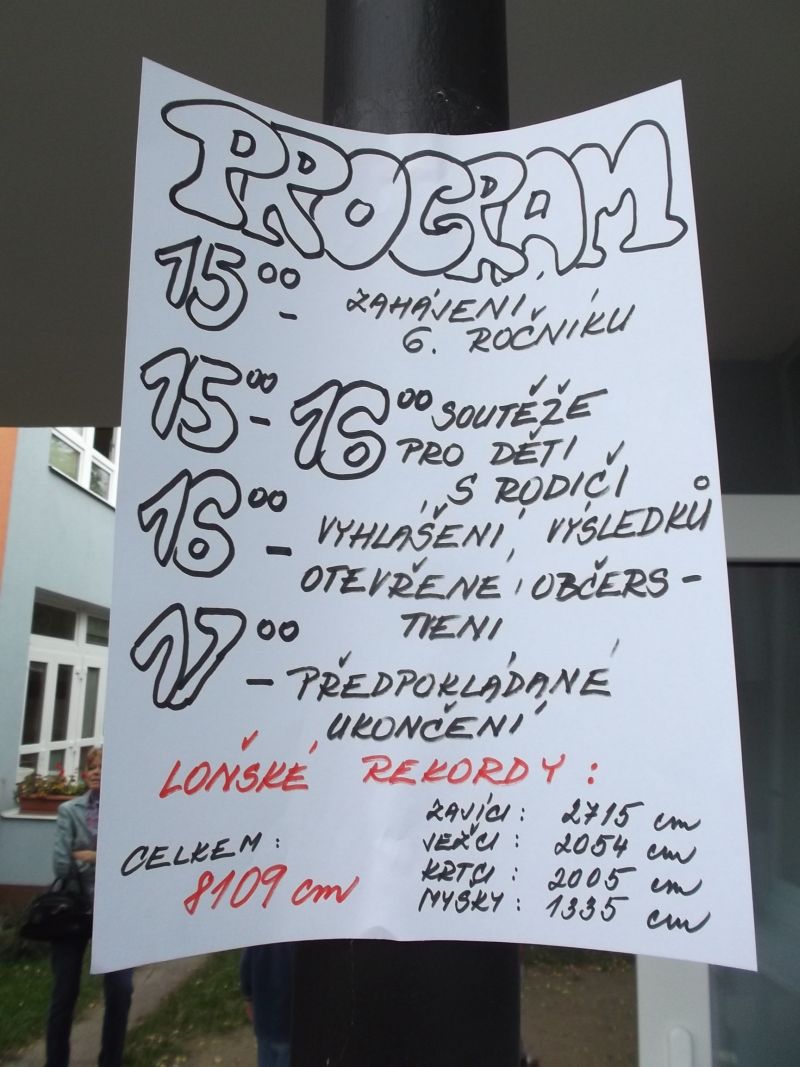 PROGRAM
15⁰⁰ - ZAHÁJENÍ
6. ROČNÍKU
15⁰⁰ - 16⁰⁰ SOUTĚŽE
PRO DĚTI
S RODIČI
16⁰⁰ - VYHLÁŠENÍ VÝSLEDKŮ
OTEVŘENÉ OBČERS-
TVENÍ
17⁰⁰ - PŘEDPOKLÁDANÉ
UKONČENÍ
LOŇSKÉ REKORDY:
CELKEM:
8109 cm
ZAJÍCI: 2715 cm
JEŽCI: 2054 cm
KRTCI: 2005 cm
MYŠKY: 1335 cm